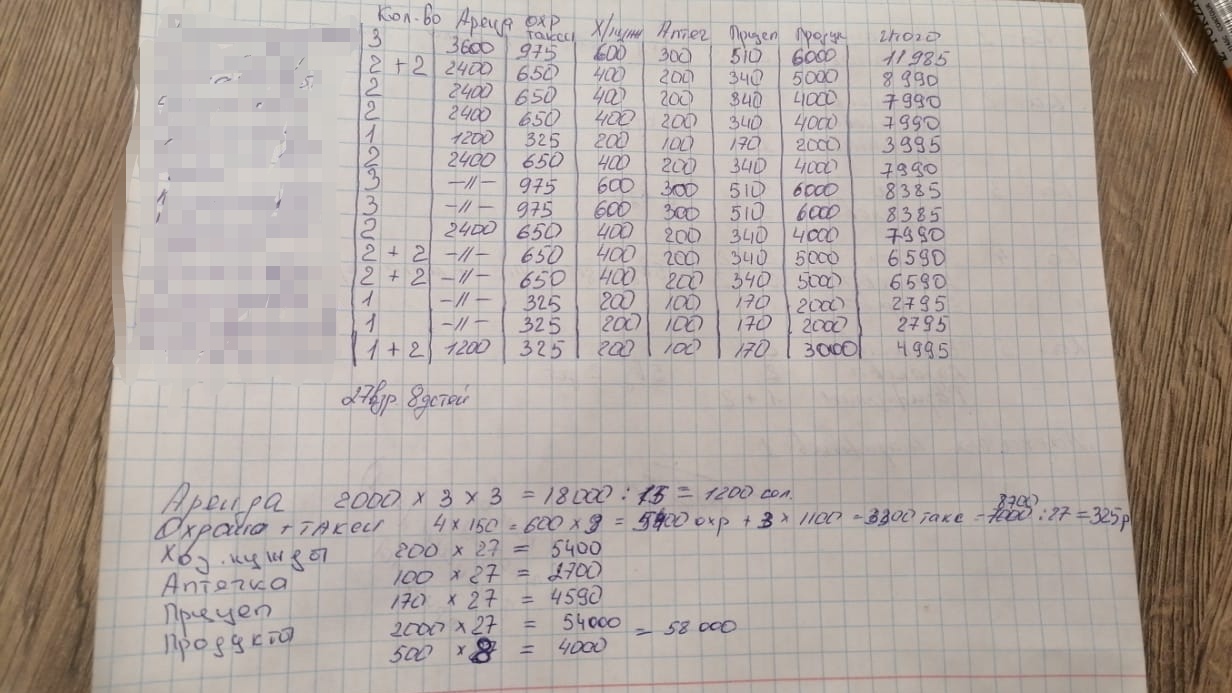 Кол-во Аренда охр такси Х/нужн Аптеч Прицеп Продук итого
3 3600 975 600 300 510 6000 11985
2 + 2 2400 650 400 200 340 5000 8990
2 2400 650 400 200 340 4000 7990
2 2400 650 400 200 340 4000 7990
1 1200 325 200 100 170 2000 3995
2 2400 650 400 200 340 4000 7990
3 -//- 975 600 300 510 6000 8385
3 -//- 975 600 300 510 6000 8385
2 2400 650 400 200 340 4000 7990
2 + 2 -//- 650 400 200 340 5000 6590
2 + 2 -//- 650 400 200 340 5000 6590
1 -//- 325 200 100 170 2000 2795
1 -//- 325 200 100 170 2000 2795
1 + 2 1200 325 200 100 170 3000 4995
27взр 8детей
Аренда 2000 × 3 × 3 = 18000 : 15 = 1200 сол.
8700
Охрана + такси 4 × 150 = 600 × 9 = 5400 охр + 3 × 1100 = 3300 такс = 7000 : 27 = 325р
Хоз. нужды 200 × 27 = 5400
Аптечка 100 × 27 = 2700
Прицеп 170 × 27 = 4590
Продукты 2000 × 27 = 54000 = 58000
500 × 8 = 4000